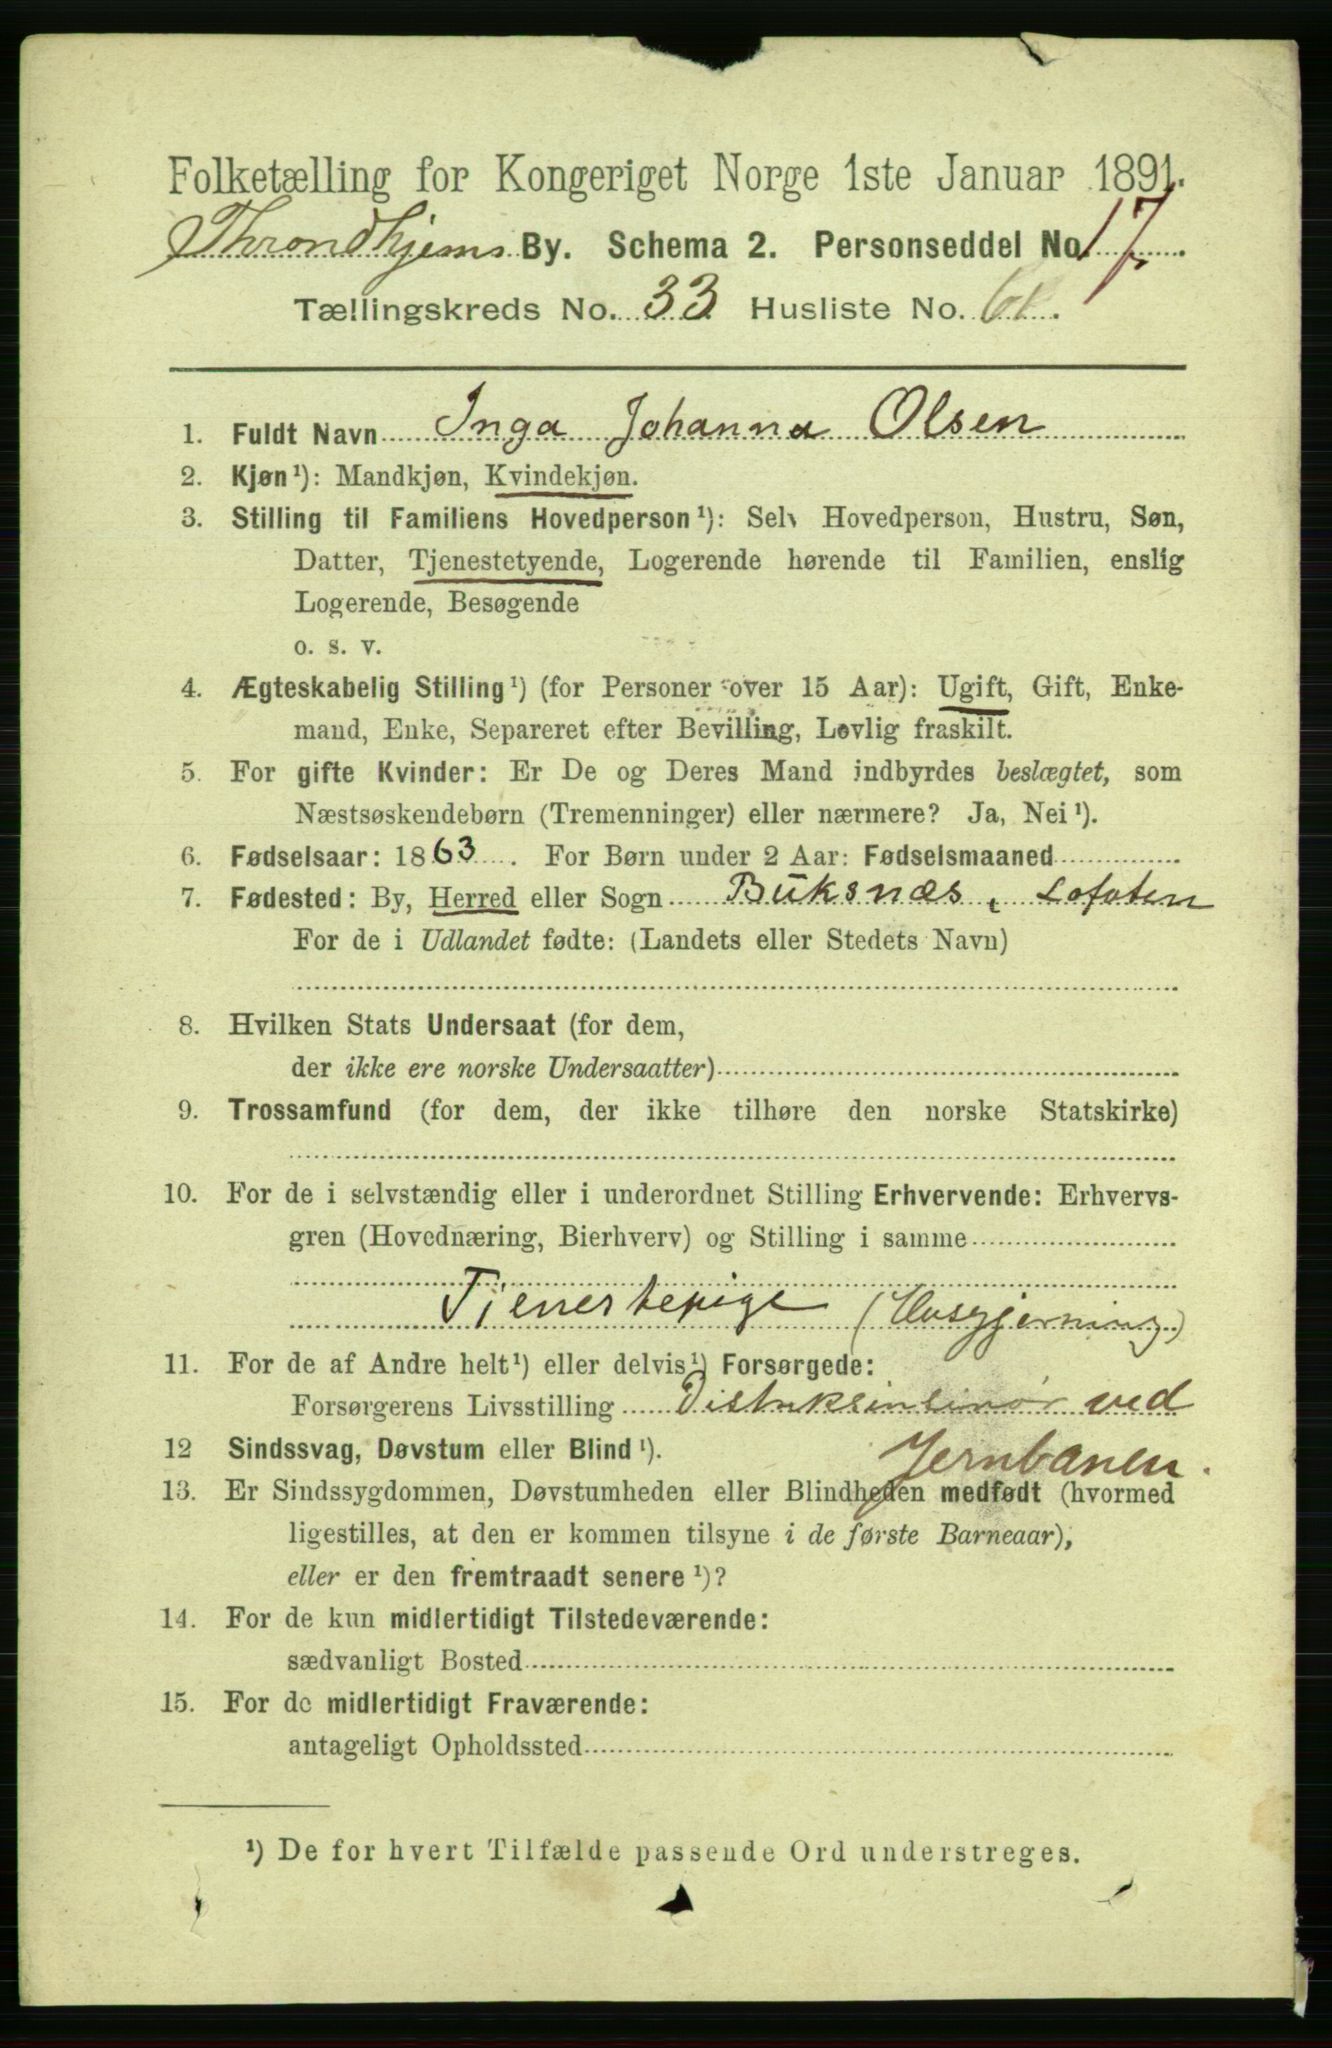 Folketælling for Kongeriget Norge 1ste Januar 1891.
Throndhjems By. Schema 2. Personseddel No. 17
Tællingskreds No. 33 Husliste No.
1. Fuldt Navn Inga Johanna Olsen
2. Kjøn¹): Mandkjøn, Kvindekjøn.
3. Stilling til Familiens Hovedperson¹): Selv Hovedperson, Hustru, Søn,
Datter, Tjenestetyende, Logerende hørende til Familien, enslig
Logerende, Besøgende
o. s. v.
4. Ægteskabelig Stilling¹) (for Personer over 15 Aar): Ugift, Gift, Enke-
mand, Enke, Separeret efter Bevilling, Lovlig fraskilt.
5. For gifte Kvinder: Er De og Deres Mand indbyrdes beslægtet, som
Næstsøskendebørn (Tremenninger) eller nærmere? Ja, Nei¹).
6. Fødselsaar: 1863. For Børn under 2 Aar: Fødselsmaaned
7. Fødested: By, Herred eller Sogn Buksnæs, Lofoten
For de i Udlandet fødte: (Landets eller Stedets Navn)
8. Hvilken Stats Undersaat (for dem,
der ikke ere norske Undersaatter)
9. Trossamfund (for dem, der ikke tilhøre den norske Statskirke)
10. For de i selvstændig eller i underordnet Stilling Erhvervende: Erhvervs-
gren (Hovednæring, Bierhverv) og Stilling i samme
Tjenestepige (Husgjerning)
11. For de af Andre helt¹) eller delvis¹) Forsørgede:
Forsørgerens Livsstilling ved
12 Sindssvag, Døvstum eller Blind¹). Jernbanen.
13. Er Sindssygdommen, Døvstumheden eller Blindheden medfødt (hvormed
ligestilles, at den er kommen tilsyne i de første Barneaar),
eller er den fremtraadt senere¹)?
14. For de kun midlertidigt Tilstedeværende:
sædvanligt Bosted
15. For de midlertidigt Fraværende:
antageligt Opholdssted
¹) De for hvert Tilfælde passende Ord understreges.